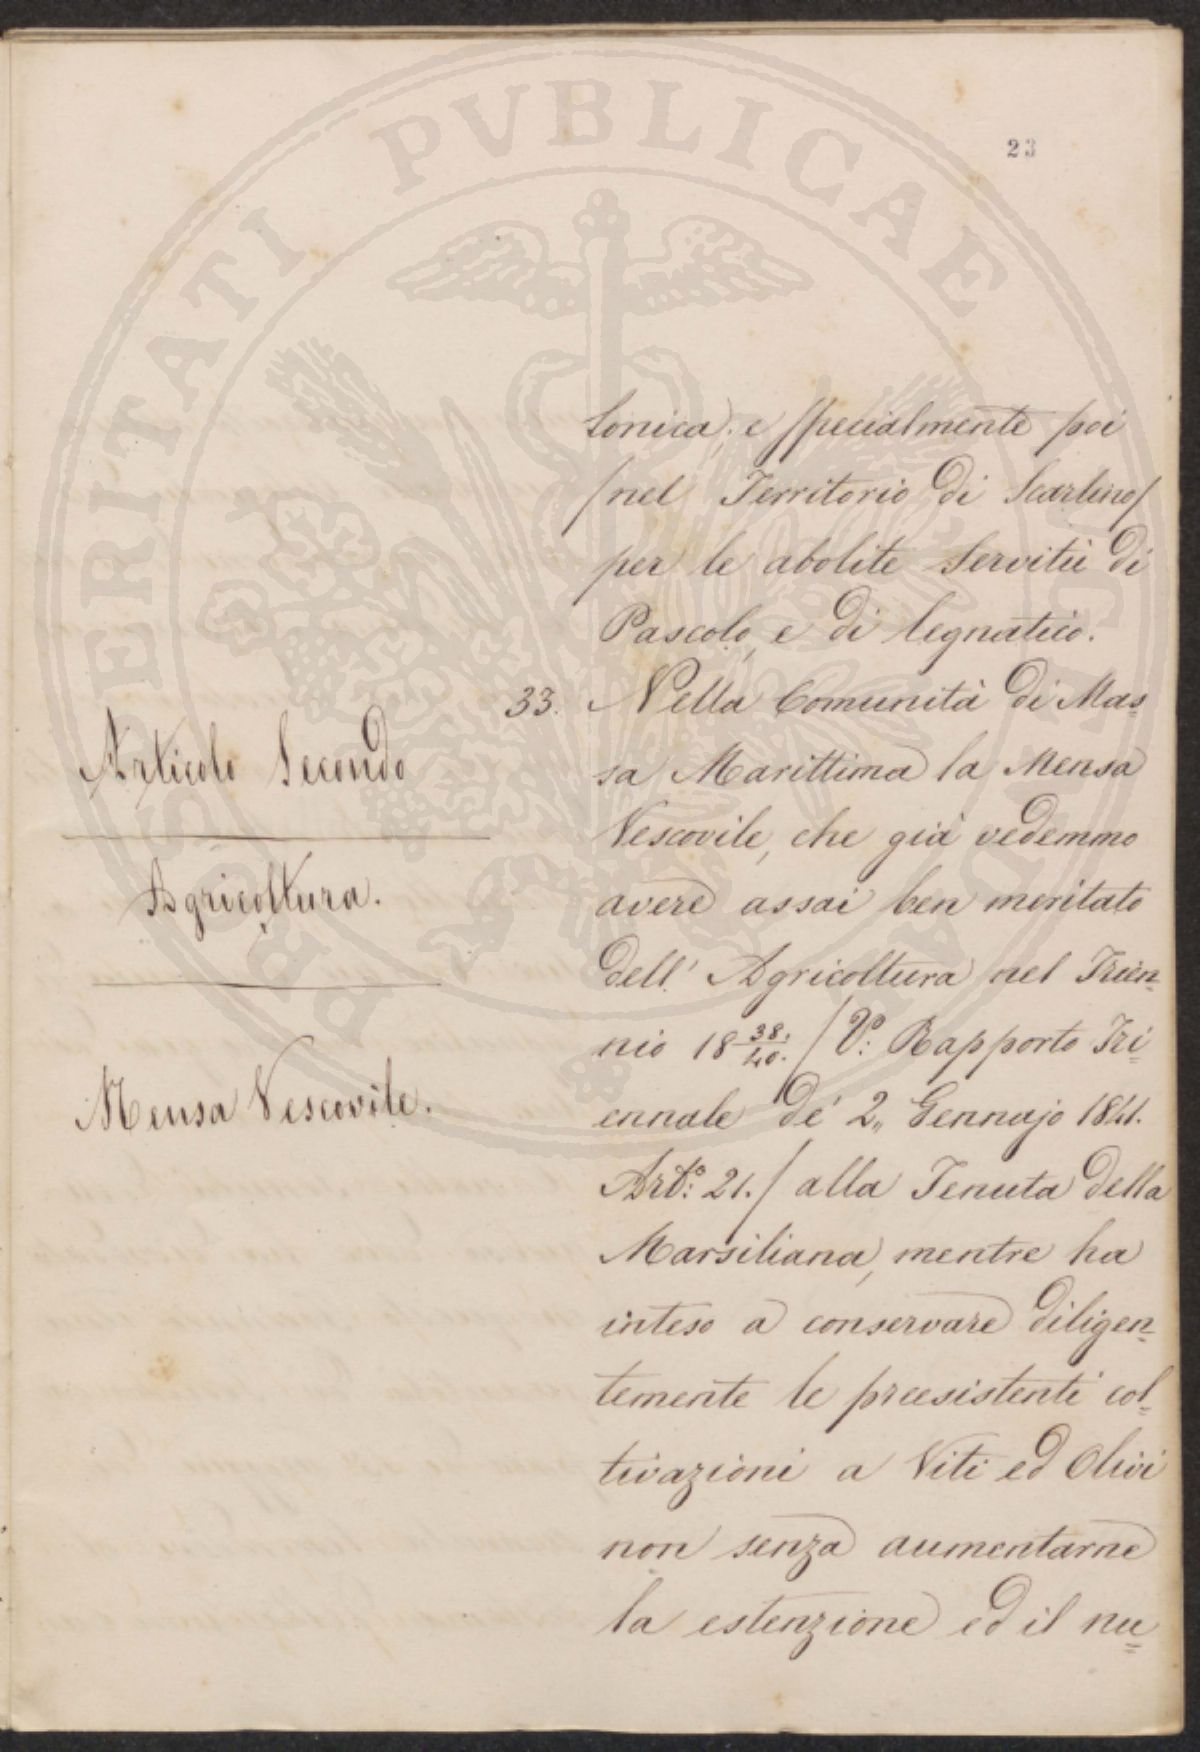 PROSPERITATI PVBLICAE
23
lonica; e specialmente poi
/nel Territorio di Scarlino/
per le abolite Servitù di
Pascolo, e di legnatico.
Articolo Secondo
Agricoltura.
Mensa Vescovile.
33. Nella Comunità di Mas=
sa Marittima la Mensa
Vescovile, che già vedemmo
avere assai ben meritato
dell' Agricoltura nel Trien=
nio 18 38./40. / V°: Rapporto Tri=
ennale de' 2,, Gennajo 1841.
Art°: 21. / alla Tenuta della
Marsiliana, mentre ha
inteso a conservare diligen=
temente le preesistenti col=
tivazioni a Viti ed Olivi
non senza aumentarne
la estenzione ed il nu=